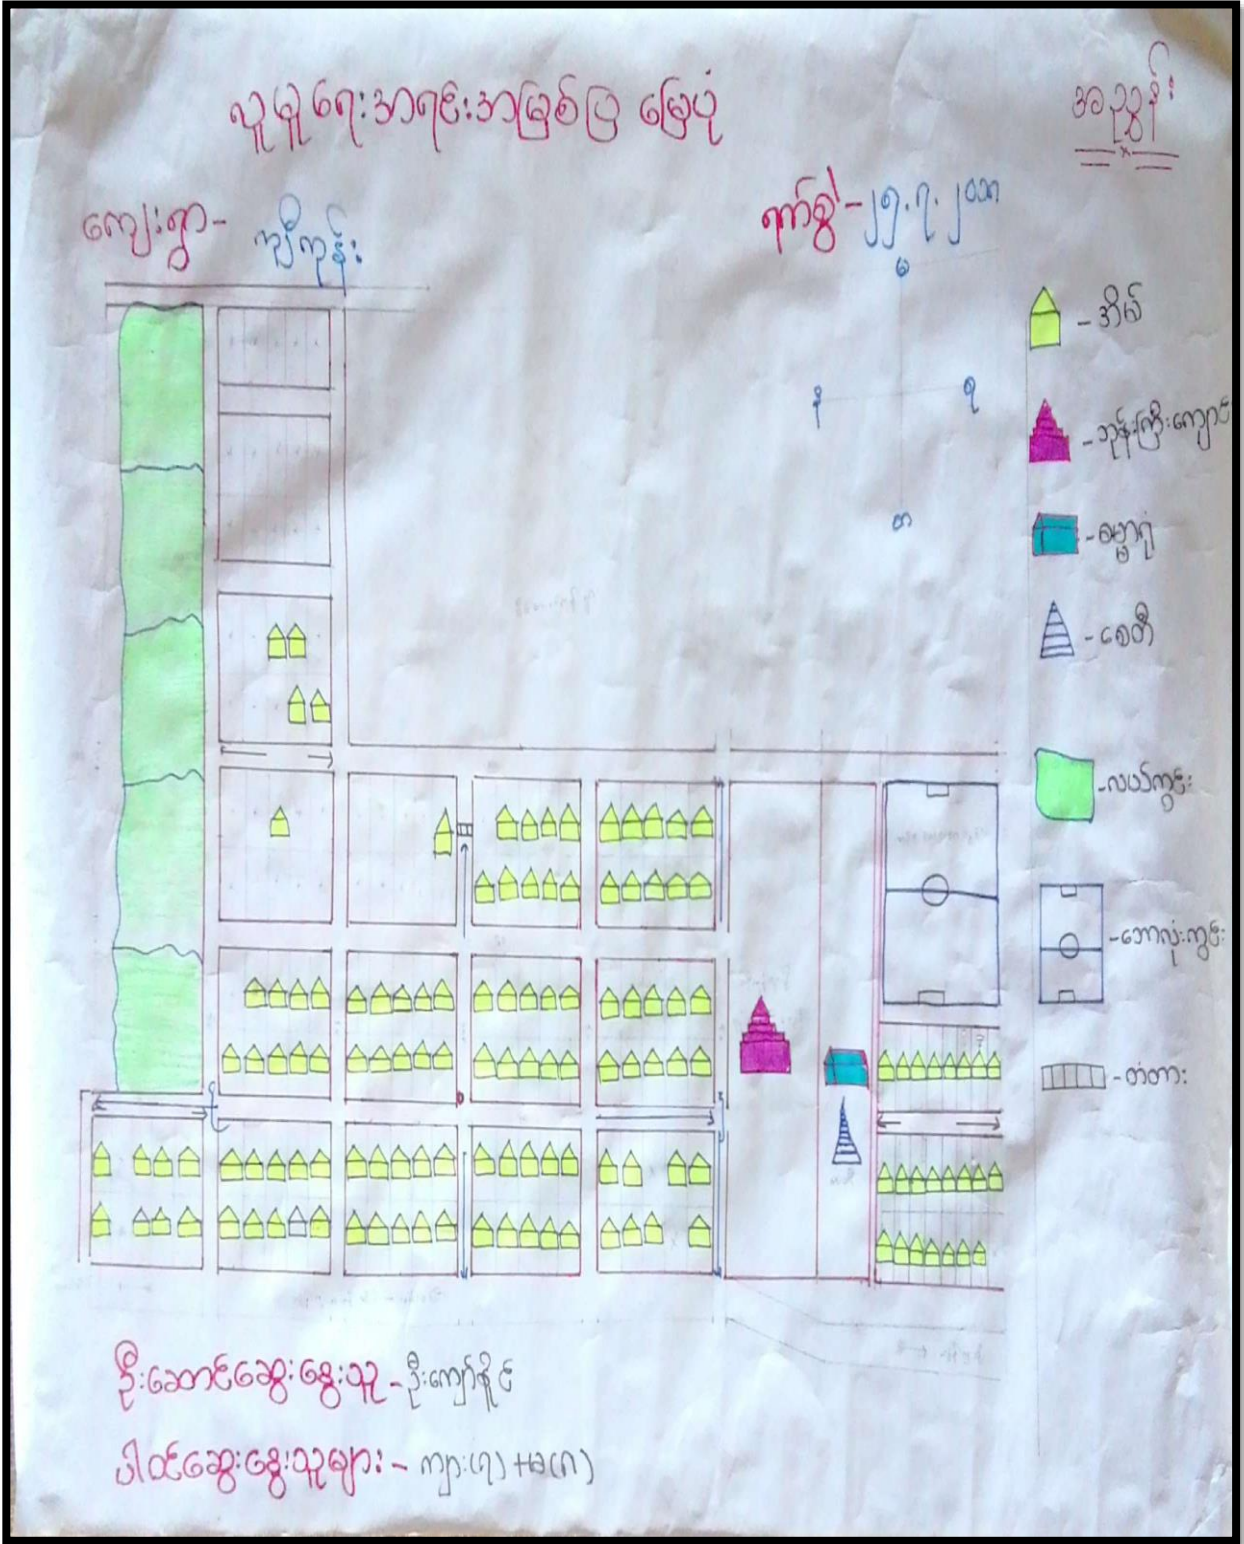 လူမှုရေးအရင်းအမြစ်ပြ မြေပုံ
အညွှန်း
ကျေးရွာ - ကျီကုန်း
ရက်စွဲ - ၂၅.၇.၂၀၁၈
မ
န
ရ
တ
- အိမ်
- ဘုန်းကြီးကျောင်း
- ဓမ္မာရုံ
- စေတီ
- လယ်ကွင်း
- ဘောလုံးကွင်း
- တံတား
ဦးဆောင်ဆွေးနွေးသူ - ဦးကျော်နိုင်
ပါဝင်ဆွေးနွေးသူများ - ကျား(၇) + မ(၈)